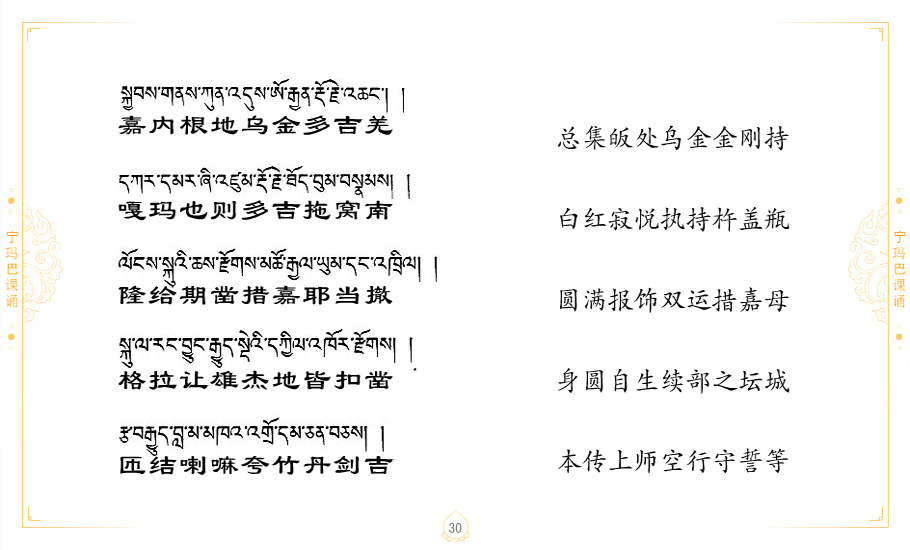 སྐྱབས་གནས་ཀུན་འདུས་ཨོ་རྒྱན་རྡོ་རྗེ་འཆང་། །
嘉内根地乌金多吉羌
总集皈处乌金金刚持
དཀར་དམར་ཞི་འཛུམ་རྡོ་རྗེ་ཐོད་བུམ་བསྣམས། །
嘎玛也则多吉拖窝南
白红寂悦执持杵盖瓶
ལོངས་སྐུའི་ཆས་རྫོགས་མཚོ་རྒྱལ་ཡུམ་དང་འཁྲིལ། །
隆给期凿措嘉耶当撤
圆满报饰双运措嘉母
སྐུ་ལ་རང་བྱུང་རྒྱུད་སྡེའི་དཀྱིལ་འཁོར་རྫོགས། །
格拉让雄杰地皆扣凿
身圆自生续部之坛城
རྩ་བརྒྱུད་བླ་མ་མཁའ་འགྲོ་དམ་ཅན་བཅས། །
匝结喇嘛夸竹丹剑吉
本传上师空行守誓等
宁玛巴课诵
宁玛巴课诵
30